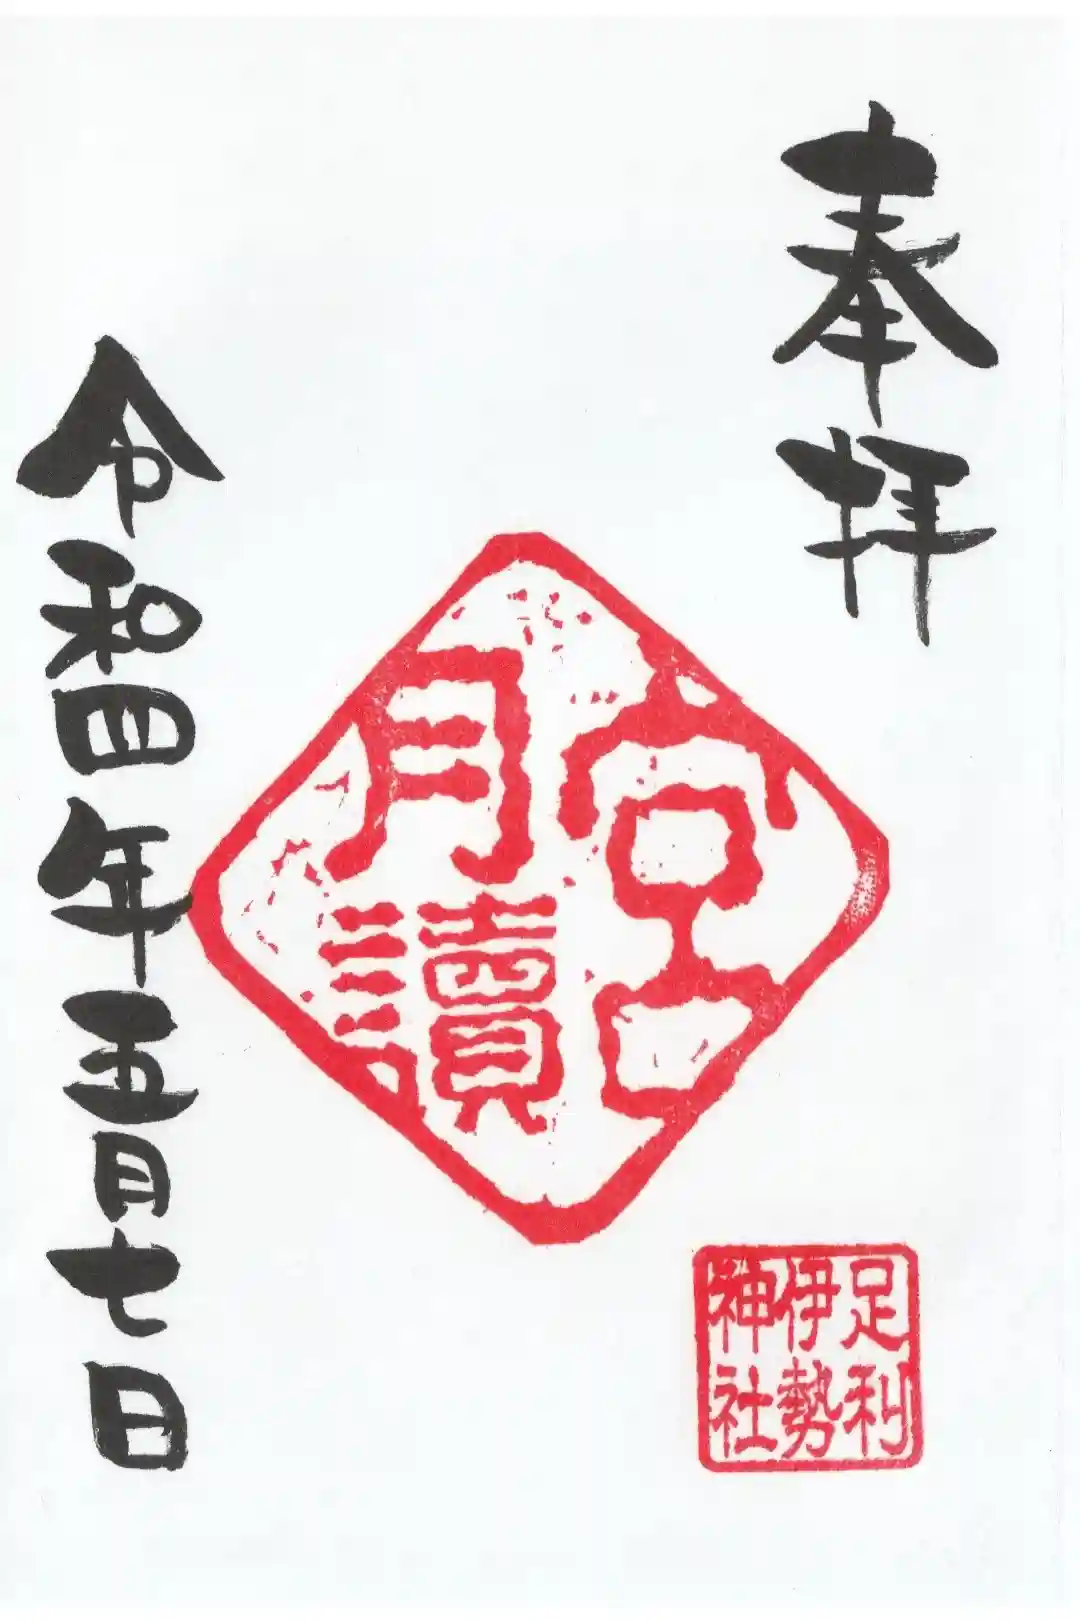 奉拝
月讀宮
足利
伊勢
神社
令和四年五月七日